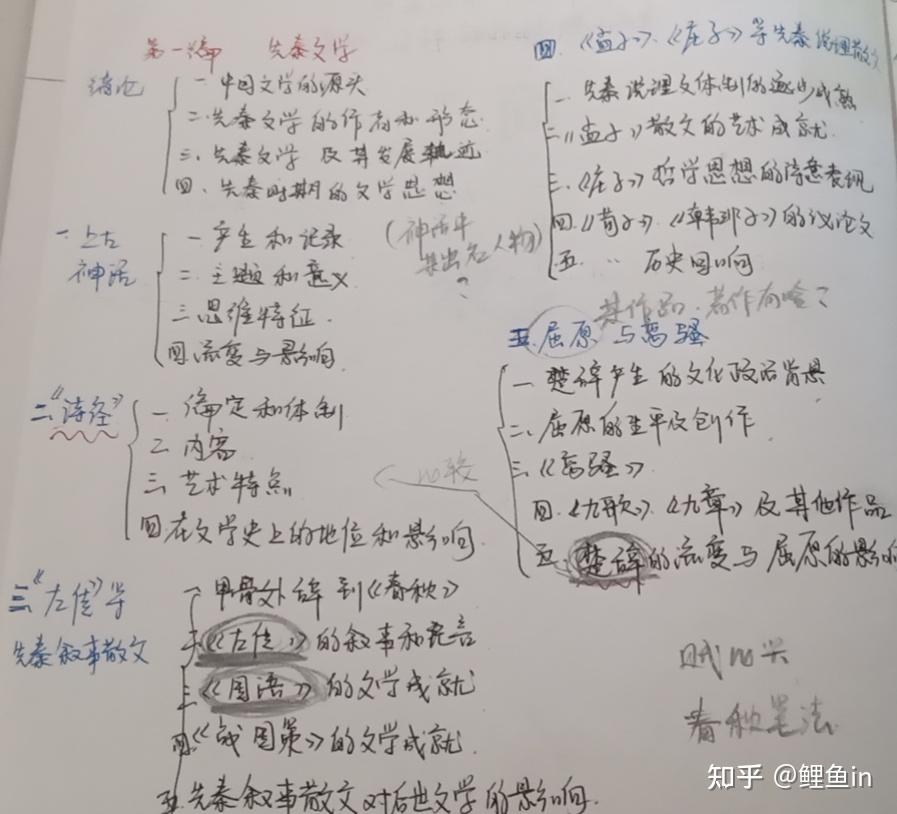 第一编 先秦文学
绪论
一 中国文学的源头
二. 先秦文学的作者和形态
三、先秦文学及其发展轨迹
四、先秦时期的文学思想
一. 上古神话
一 产生和记录
二. 主题和意义
三 思维特征
四. 流变与影响
(神话中其出名人物)?
二.《诗经》
一. 编定和体制
二 内容
三. 艺术特点
四 在文学史上的地位和影响
比较
三.《左传》等先秦叙事散文
一 甲骨卜辞到《春秋》
二《左传》的叙事和记言
三《国语》的文学成就
四《战国策》的文学成就.
五. 先秦叙事散文对后世文学的影响.
四.《孟子》.《庄子》等先秦说理散文
一. 先秦说理文体制的逐步成熟
二.《孟子》散文的艺术成就.
三.《庄子》哲学思想的诗意表现
四.《荀子》.《韩非子》的议论文
五. " 历史回响
其作品.著作有啥?
五. 屈原与离骚
一. 楚辞产生的文化政治背景
二. 屈原的生平及创作
三.《离骚》
四.《九歌》.《九章》及其他作品
五. 楚辞的流变与屈原的影响
赋比兴
春秋笔法.
知乎 @鲤鱼in